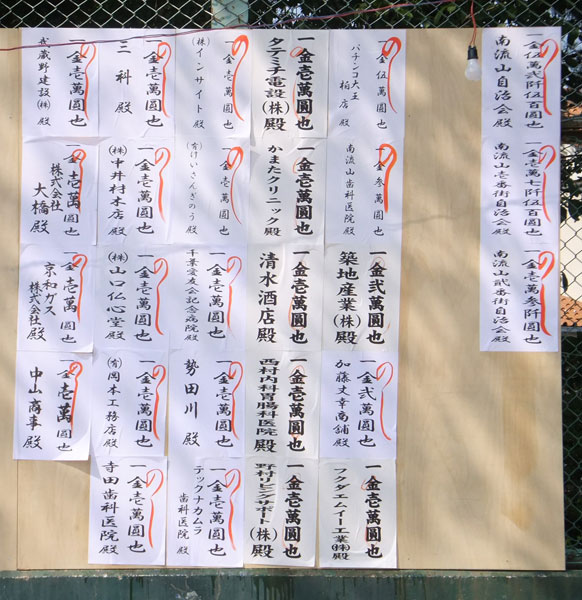 一金伍萬弐阡伍百圓也
南流山自治会殿
一金壱萬七阡伍百圓也
南流山壱番街自治会殿
一金壱萬参阡圓也
南流山弐番街自治会殿
一金伍萬圓也
パチンコ大王
柏店殿
一金参萬圓也
南流山歯科医院殿
一金弐萬圓也
築地産業(株)殿
一金弐萬圓也
加藤丈幸商舗殿
一金壱萬圓也
フクダエムイー工業(株)殿
一金壱萬圓也
タテミチ電設(株)殿
一金壱萬圓也
かまたクリニック殿
一金壱萬圓也
清水酒店殿
一金壱萬圓也
西村内科胃腸科医院殿
一金壱萬圓也
野村リビングサポート(株)殿
一金壱萬圓也
(株)インサイト殿
一金壱萬圓也
(有)けいさんぎのう殿
一金壱萬圓也
千葉愛友会記念病院殿
一金壱萬圓也
勢田川殿
一金壱萬圓也
テックナカムラ
歯科医院殿
一金壱萬圓也
三科殿
一金壱萬圓也
(株)中井村本店殿
一金壱萬圓也
(株)山口仏心堂殿
一金壱萬圓也
(有)岡本工務店殿
一金壱萬圓也
寺田歯科医院殿
一金壱萬圓也
武蔵野建設(株)殿
一金壱萬圓也
株式会社
大橋殿
一金壱萬圓也
京和ガス
株式会社殿
一金壱萬圓也
中山商事殿